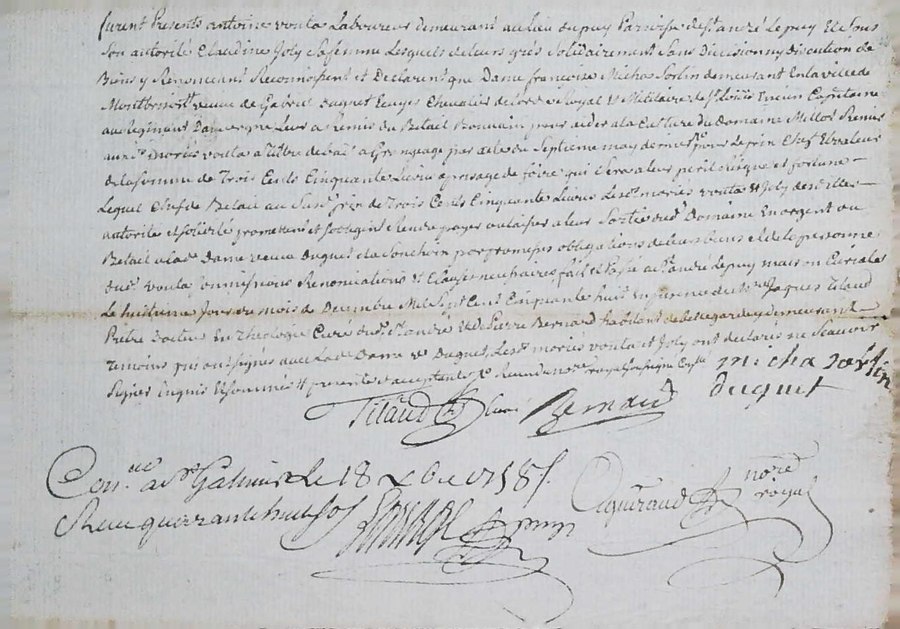 furent Presents antoine voula Laboureur demeurant au lieu du puy Parroisse de St. andré Lepuy Et sous
Son autorité Claudine Joly Sa femme Lesquels de leurs grés Solidairement Sans Division ny Discution de
Biens y Renoncant Reconnoissent et Declarent que Dame françoise Michas Sorlin demeurant En la ville de
Montbrison veuve de Gabriel Duguet Ecuyer Chevalier de Lordre Royal & Militaire de St. Louis Encien Capitaine
au Regiment Dauvergne Leur a Remis du Betail pour aider a la Culture du Domaine Remis
aux d. mariés voula a titre de bail a Grangeage par acte du Septieme may dernier pour Le prin Chef Et valeur
de la Somme de Trois Cents Cinquante Livres a prisage de foire qui Sera a leur peril Risque et fortune
Lequel Chef de Betail au Susd. prix de Trois Cents Cinquante Livres Lesd. mariés voula & Joly des dittes
autorité et solidité promettent et sobligent Rendre payer ou laisser a leur Sortie dud. Domaine En argent ou
Betail a lad. Dame veuve Duguet par promesses obligations de leurs biens et de la personne
dud. voula Soumissions Renonciations & Clauses necessaires fait et Passé aud. St. andré Lepuy maison Curiale
Le huitieme Jour du mois de Decembre Mil Sept Cent Cinquante huit En presence de Mre Jaques Titaud
Prêtre Docteur En Theologie Curé dud. St. andré & de Pierre Bernard habitant de Bellegarde y demeurant
Temoins qui ont signés avec Lad. Dame ve Duguet, Lesd. mariés voula et Joly ont declarés ne Scavoir
Signer Enquis & Sommés & presente et acceptante
michas sorlin
duguet
Titaud Curé Bernard
Con.lé a St Galmier Le 18 Xbre 1758
Recu quarante huit sols
nore royal